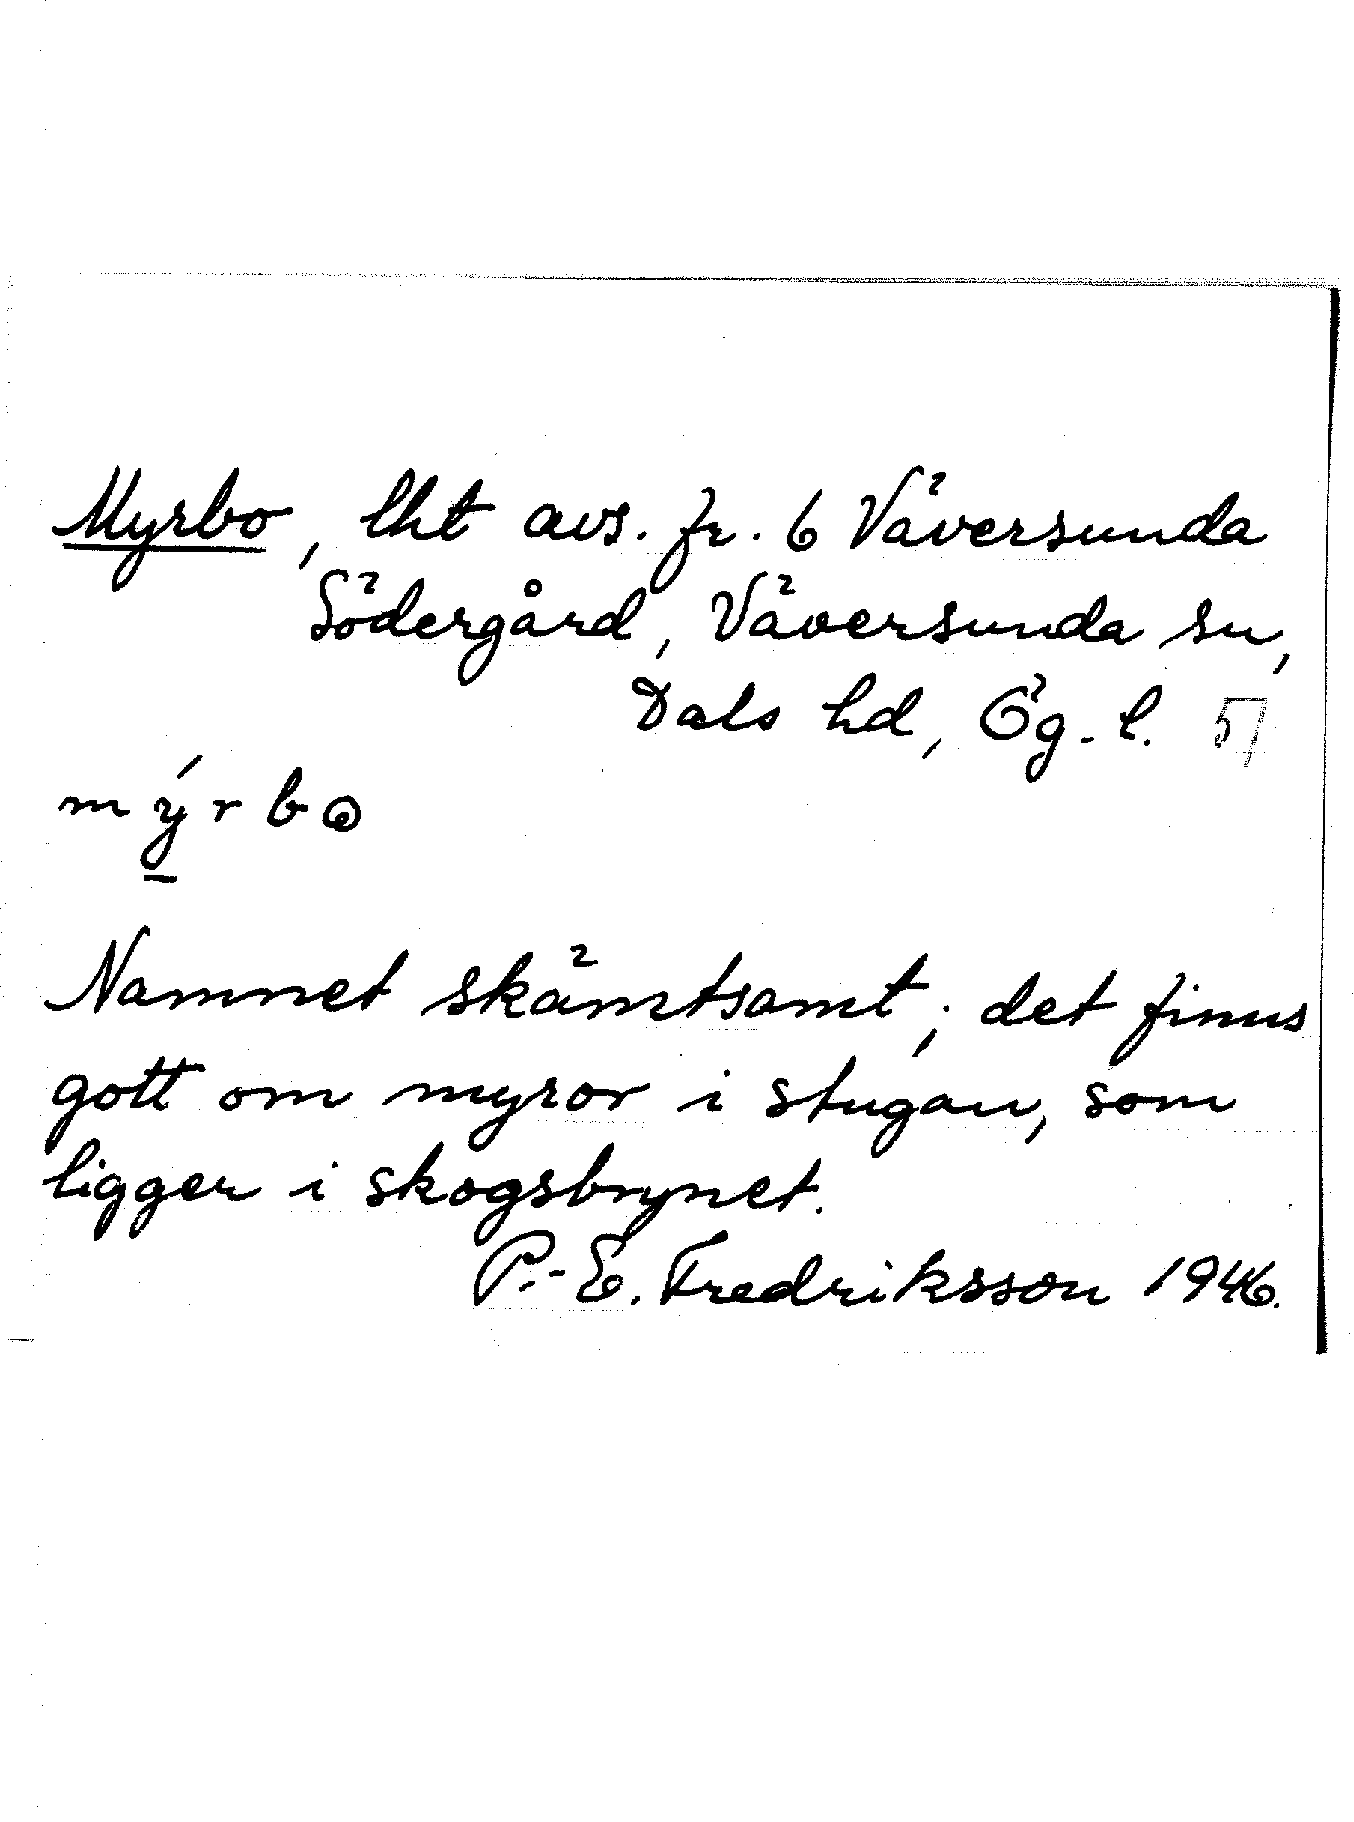 Myrbo, lht avs. fr. 6 Väversunda
Södergård, Väversunda sn,
Dals hd, Ög. l. 57
mýrbo
Namnet skämtsamt; det finns
gott om myror i stugan, som
ligger i skogsbrynet.
P.-E. Fredriksson 1946.